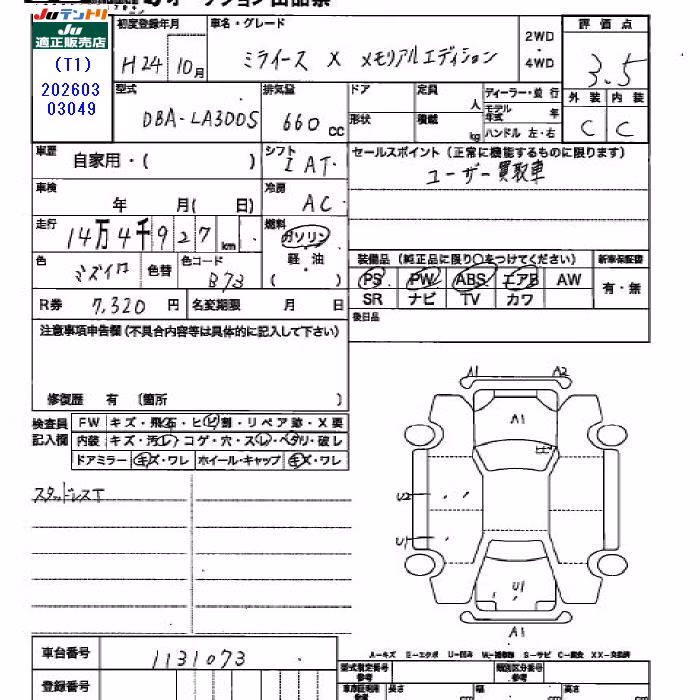 JUテントリ
JU
適正販売店
(T1)
202603
03049
初度登録年月
H24 10月
車名・グレード
ミライース X メモリアルエディション
2WD
・
4WD
評価点
3.5
型式
DBA-LA300S
排気量
660 cc
ドア
定員
人
形状
積載
kg
ディーラー・並行
モデル年式 年
ハンドル 左・右
外装 内装
C C
車歴
自家用・( )
シフト
I AT
セールスポイント (正常に機能するものに限ります)
ユーザー買取車
車検
年 月( 日)
冷房
AC
走行
14万4千927km
燃料
ガソリン
軽・油
( )
色
ミズイロ
色替
色コード
B73
装備品 (純正品に限り○をつけてください)
新車保証書
PS PW ABS エアB AW
有・無
SR ナビ TV カワ
R券 7,320 円 名変期限 月 日
後日品
注意事項申告欄(不具合内容等は具体的に記入して下さい)
修復歴 有 〔箇所 〕
検査員
記入欄
FW キズ・飛石・ヒビ割・リペア跡・X要
内装 キズ・汚レ・コゲ・穴・スレ・ベタリ・破レ
ドアミラー キズ・ワレ ホイール・キャップ キズ・ワレ
スタッドレスT
A1 A2
A1
U2
U1
U1
A1
A-キズ E-エクボ U-凹み W-補修跡 S-サビ C-腐食 XX-交換済
車台番号
1131073
登録番号
型式指定番号
参考
類別区分番号
参考
長さ
cm
幅
cm
高さ
cm